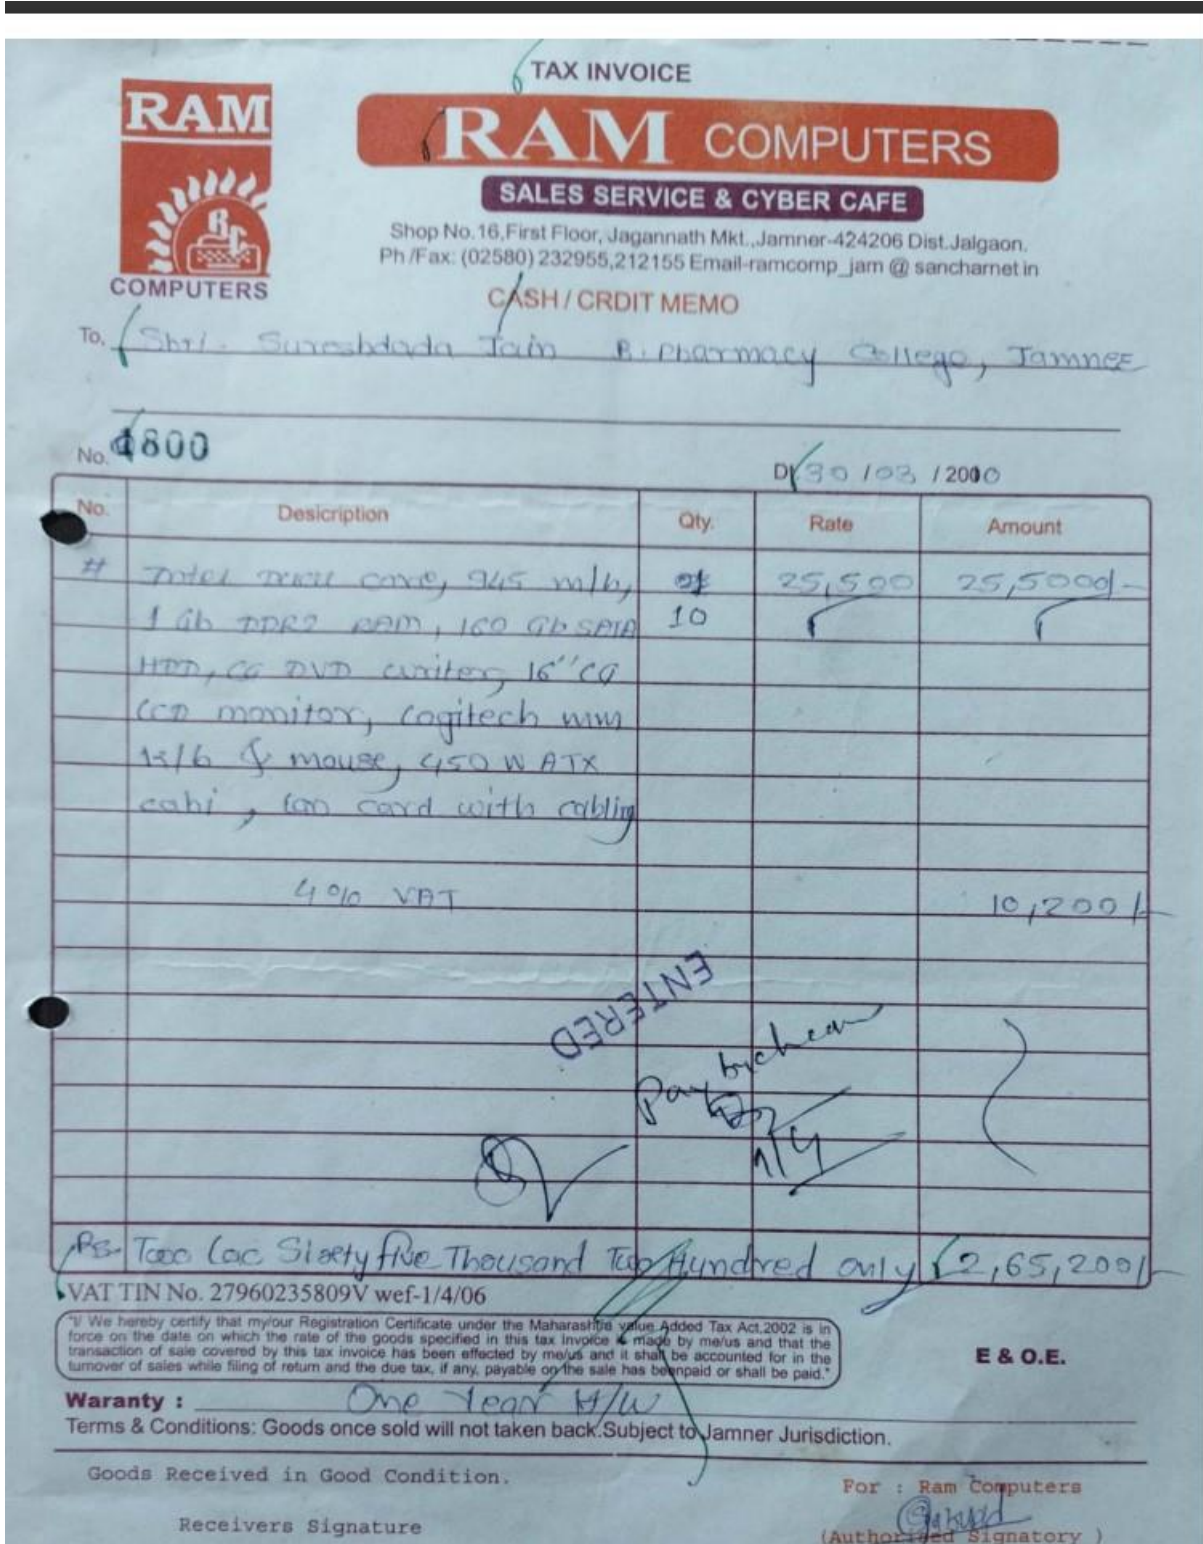 TAX INVOICE
RAM
COMPUTERS
RAM COMPUTERS
SALES SERVICE & CYBER CAFE
Shop No.16,First Floor, Jagannath Mkt.,Jamner-424206 Dist.Jalgaon.
Ph /Fax: (02580) 232955,212155 Email-ramcomp_jam @ sancharnet in
CASH / CRDIT MEMO
To, Shri. Sureshdada Jain B. Pharmacy College, Jamner
No. 1800
Dt. 30 / 03 / 2010
No. Desicription Qty. Rate Amount
# Intel core, 945 m/b, 25,500 25,5000/-
1 Gb DDR2 RAM, 160 Gb SATA 10
HDD, LG DVD writer, 16" LG
LCD monitor, Logitech mm
k/b & mouse, 450 W ATX
cabi, lan card with cabling
4% VAT 10,200/-
ENTERED
Pay by
Rs. Two Lac Sixety five Thousand Two Hundred only 2,65,200/-
VAT TIN No. 27960235809V wef-1/4/06
"I/ We hereby certify that my/our Registration Certificate under the Maharashtra value Added Tax Act,2002 is in
force on the date on which the rate of the goods specified in this tax Invoice is made by me/us and that the
transaction of sale covered by this tax invoice has been effected by me/us and it shall be accounted for in the
turnover of sales while filing of return and the due tax, if any, payable on the sale has beenpaid or shall be paid."
E & O.E.
Waranty : One Year H/W
Terms & Conditions: Goods once sold will not taken back.Subject to Jamner Jurisdiction.
Goods Received in Good Condition.
For : Ram Computers
Receivers Signature
(Authorised Signatory )